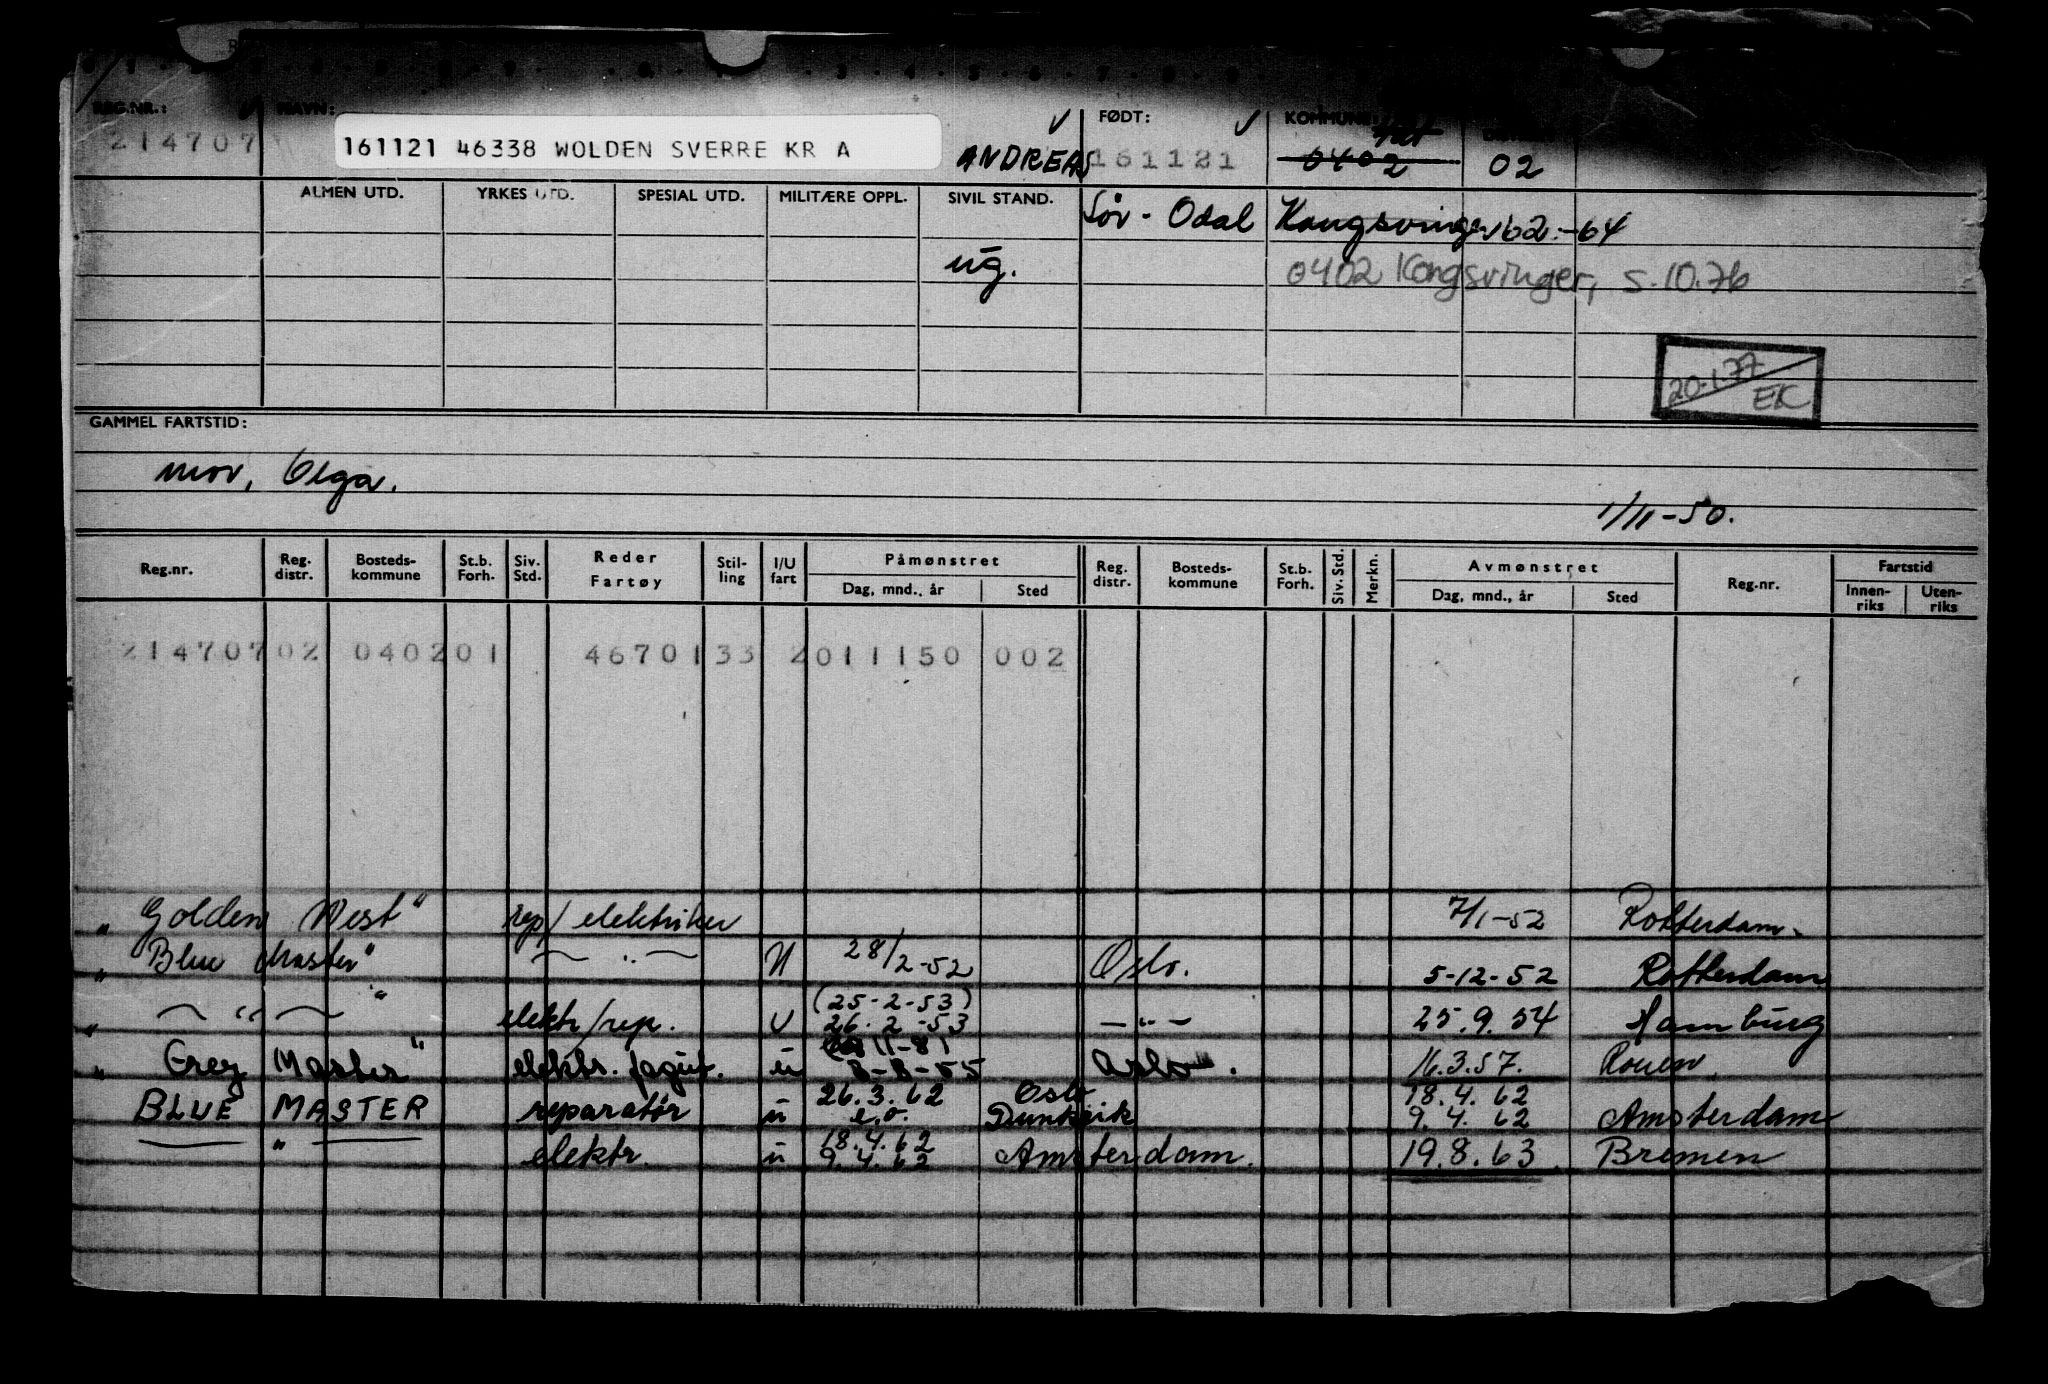 REG.NR.: NAVN: FØDT: KOMMUNE:
214707 161121 46338 WOLDEN SVERRE KR A ANDREAS 161121 0402 02
ALMEN UTD. YRKES UTD. SPESIAL UTD. MILITÆRE OPPL. SIVIL STAND. Sør-Odal Kongsvinger 62-64
ug. 0402 Kongsvinger, s.10.76
20.1.77
EK
GAMMEL FARTSTID:
mor, Olga.
1/11-50.
Reg.nr. Reg. distr. Bosteds-kommune St.b. Forh. Siv. Std. Reder Fartøy Stil-ling I/U fart Påmønstret Dag, mnd., år Sted Reg. distr. Bosteds-kommune St.b. Forh. Siv. Std. Merkn. Avmønstret Dag, mnd., år Sted Reg.nr. Fartstid Innen-riks Uten-riks
214707 02 0402 01 46701 33 2 011150 002
" Golden West" rep/elektriker 7/1-52 Rotterdam.
" Blue Master" — " — U 28/2-52 Oslo. 5-12-52 Rotterdam
(25-2-53)
" — " — " elektr/rep. U 26.2-53 — " — 25.9.54 Hamburg
" Grey Master" elektr. u 8-8-55 Oslo. 16.3.57. Rouen.
26.3.62 Oslo 18.4.62
BLUE MASTER reparatør u e.o. 9.4.62 Amsterdam
18.4.62
— " — elektr. u 9.4.62 Amsterdam. 19.8.63 Bremen